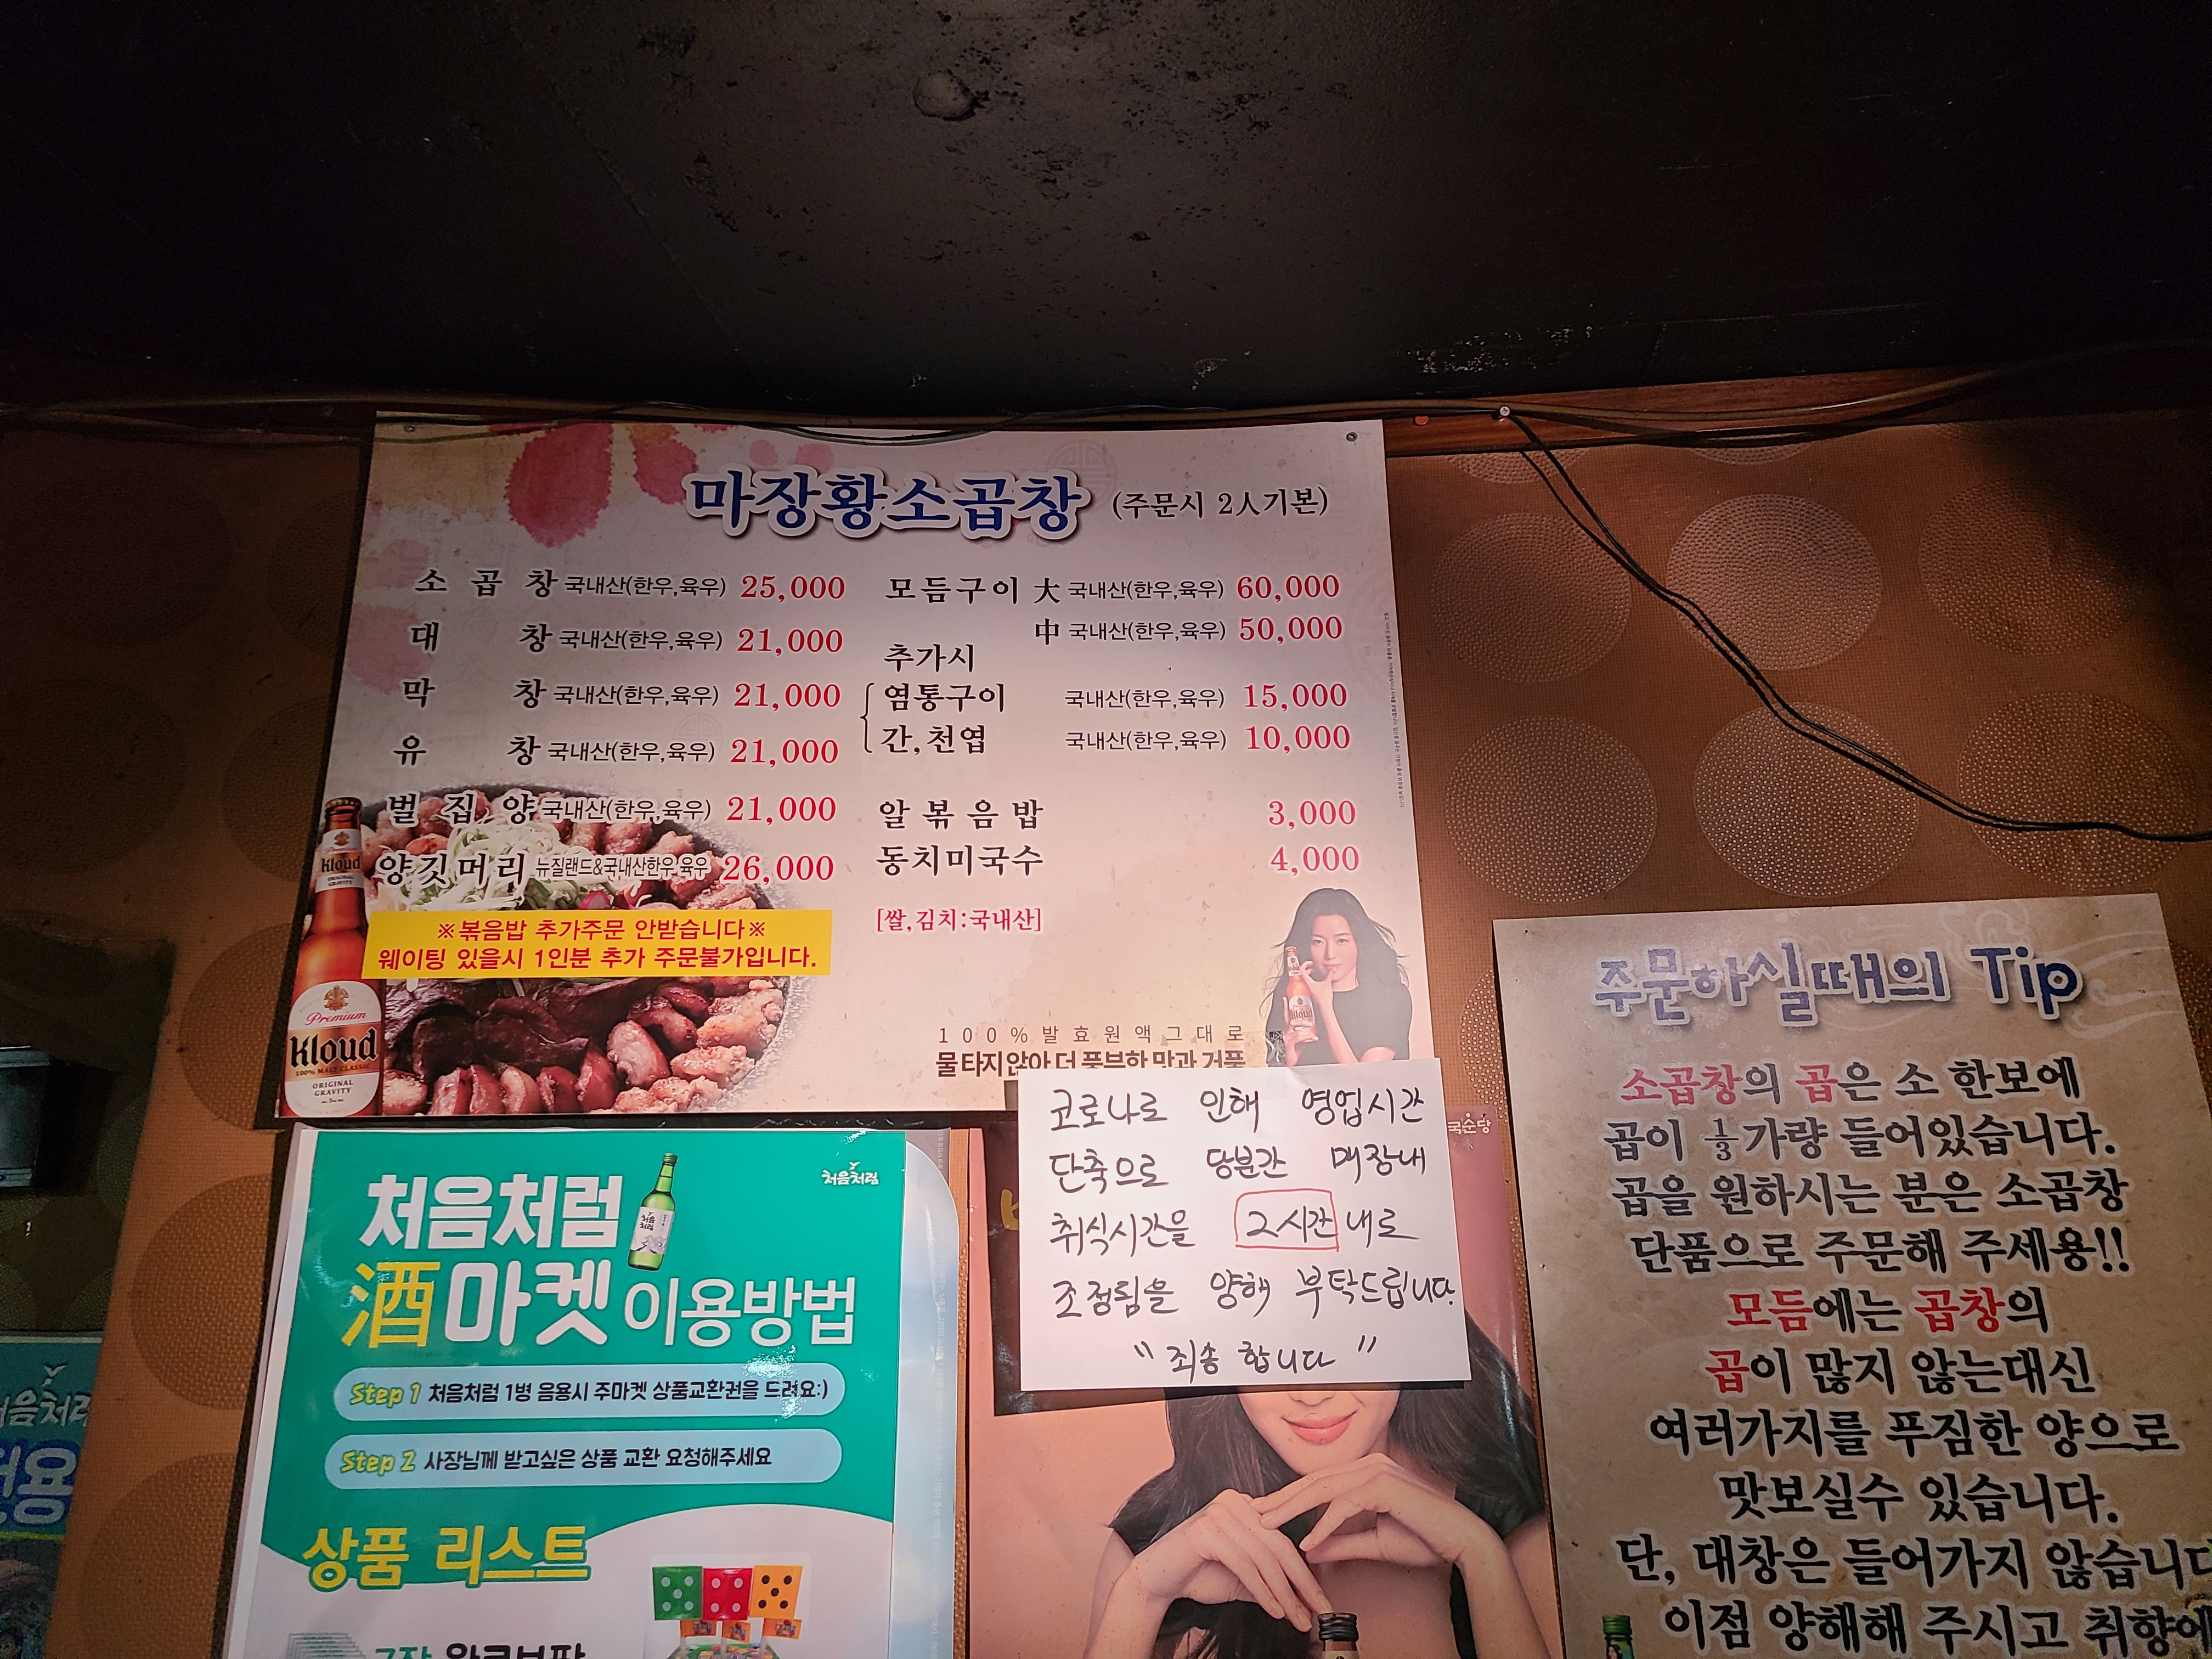 마장황소곱창 (주문시 2人기본)
소 곱 창 국내산(한우,육우) 25,000
대 창 국내산(한우,육우) 21,000
막 창 국내산(한우,육우) 21,000
유 창 국내산(한우,육우) 21,000
벌 집 양 국내산(한우,육우) 21,000
양깃머리 뉴질랜드&국내산한우 육우 26,000
※볶음밥 추가주문 안받습니다※
웨이팅 있을시 1인분 추가 주문불가입니다.
모듬구이 大 국내산(한우,육우) 60,000
中 국내산(한우,육우) 50,000
추가시
염통구이 국내산(한우,육우) 15,000
간,천엽 국내산(한우,육우) 10,000
알 볶 음 밥 3,000
동치미국수 4,000
[쌀,김치:국내산]
100%발효원액그대로
물타지않아 더 풍부한 맛과 거품
Kloud
ORIGINAL
GRAVITY
Premium
Kloud
100% MALT CLASSIC
ORIGINAL
GRAVITY
Kloud
코로나로 인해 영업시간
단축으로 당분간 매장내
취식시간을 2시간 내로
조정됨을 양해 부탁드립니다.
"죄송 합니다"
국순당
처음처럼
처음처럼
酒마켓 이용방법
Step 1 처음처럼 1병 음용시 주마켓 상품교환권을 드려요:)
Step 2 사장님께 받고싶은 상품 교환 요청해주세요
상품 리스트
주문하실때의 Tip
소곱창의 곱은 소 한보에
곱이 ⅓가량 들어있습니다.
곱을 원하시는 분은 소곱창
단품으로 주문해 주세용!!
모듬에는 곱창의
곱이 많지 않는대신
여러가지를 푸짐한 양으로
맛보실수 있습니다.
단, 대창은 들어가지 않습니다
이점 양해해 주시고 취향에